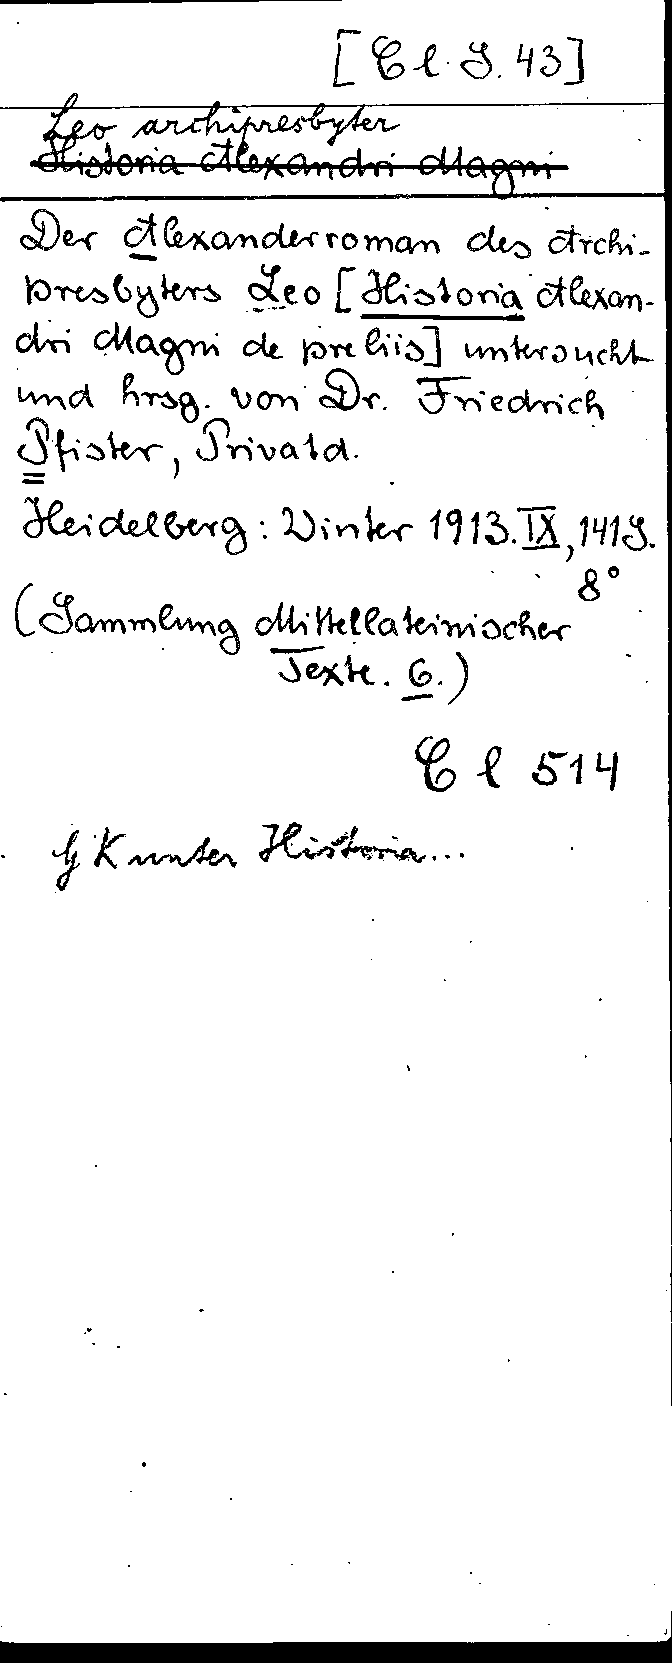 [Cl. S. 43]
Leo archipresbyter
Historia Alexandri Magni
Der Alexanderroman des Archi-
presbyters Leo [Historia Alexan-
dri Magni de preliis] untersucht
und hrsg. von Dr. Friedrich
Pfister, Privatd.
Heidelberg: Winter 1913. IX, 141 S.
8°
(Sammlung Mittellateinischer
Texte. 6.)
Cl 514
GK unter Historia...